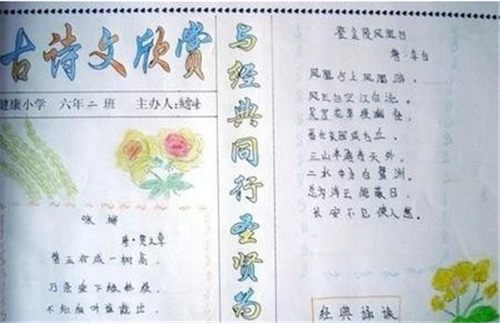 古诗文欣赏
健康小学 六年二班 主办人:
咏柳
唐·贺章
碧玉成一树高
万条垂下绿丝
不知叶裁出
与经典同行圣贤为
登金陵凤凰台
唐·李白
凤凰台上凤凰游
凤去台空江自流
吴宫花草埋幽径
成古丘
三山半落青天外
二水中分白鹭洲
总为浮云能蔽日
长安不见使人愁
经典诵读